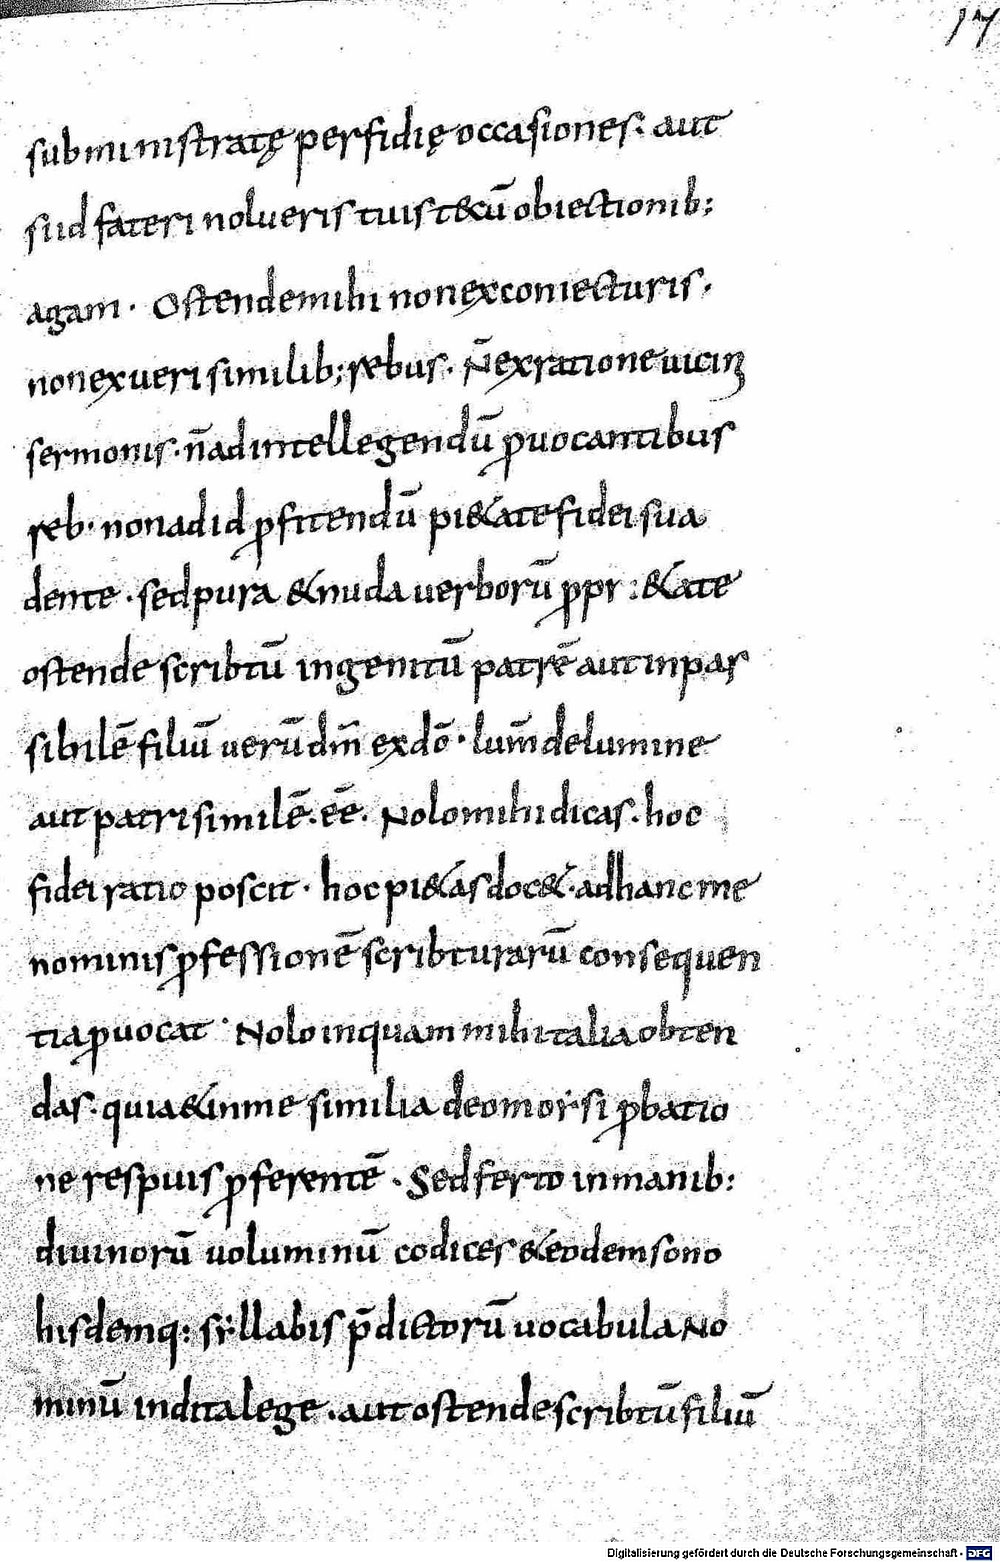 17
subministratę perfidię occasiones: aut
siid fateri nolueris tuis tecū obiectionib;
agam · Ostende mihi non ex coniecturis ·
non ex ueri similib; rebus · N̄ ex ratione uicinę
sermonis · n̄ ad intellegendū ꝓuocantibus
reb· non ad id ꝓfitendū pi&ate fidei sua
dente · sed pura & nuda uerborū ꝓpr:&ate
ostende scribtū ingenitū patrē aut inpas
sibilē filiū uerū dm̄ ex dō · lum̄ de lumine
aut patri similē · eē · Nolo mihi dicas · hoc
fidei ratio poscit · hoc pi&as doc& · ad hanc me
nominis ꝓfessionē scribturarū consequen
tia ꝓuocat · Nolo inquam mihi talia obten
das · quia & in me similia de omoẏsi ꝓbatio
ne respuis ꝓferentē · Sed ferto in manib:
diuinorū uoluminū codices & eodem sono
hisdemq: sẏllabis p̄dictorū uocabula No
minū indita lege · aut ostende scribtū filiū
Digitalisierung gefördert durch die Deutsche Forschungsgemeinschaft - DFG